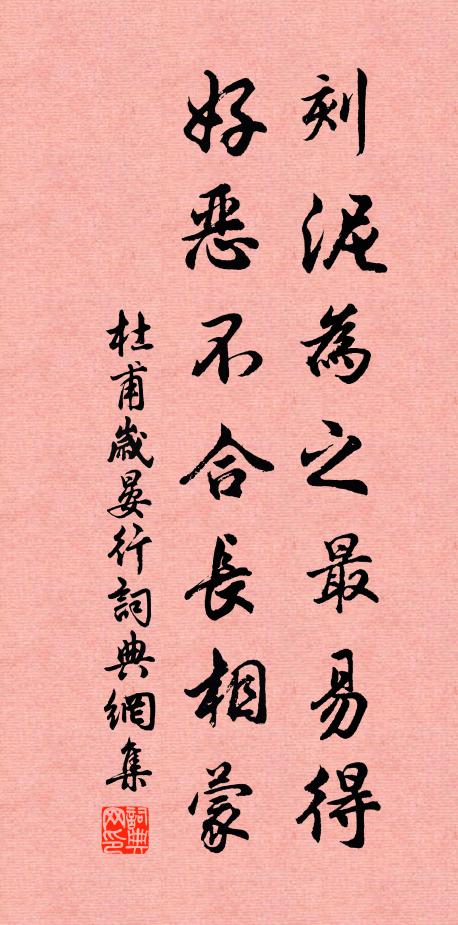 刻泥為之最易得
好惡不合長相蒙
杜甫歲晏行詞典網集
詞典
网印